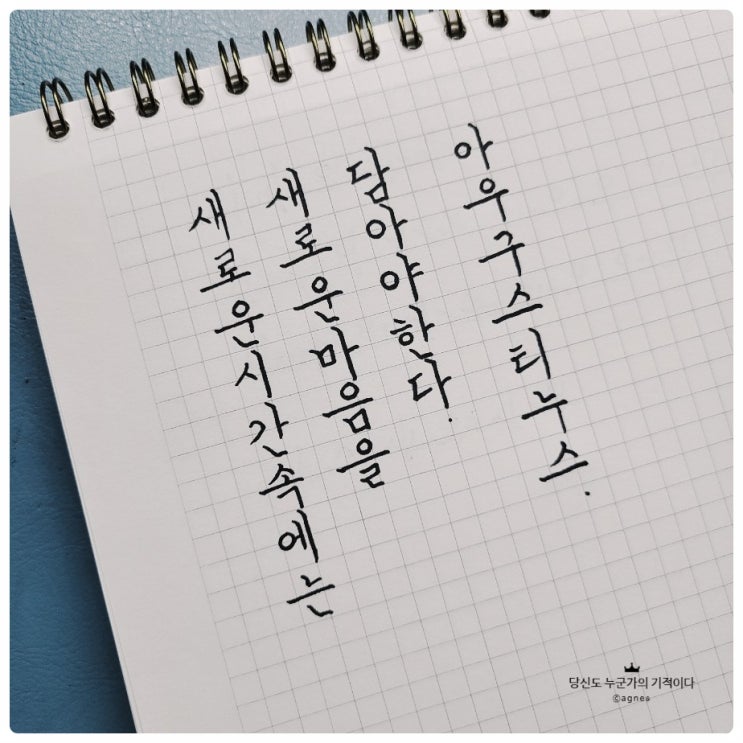 새로운시간속에는
새로운마음을
담아야한다.
아우구스티누스.
당신도 누군가의 기적이다
©agnes